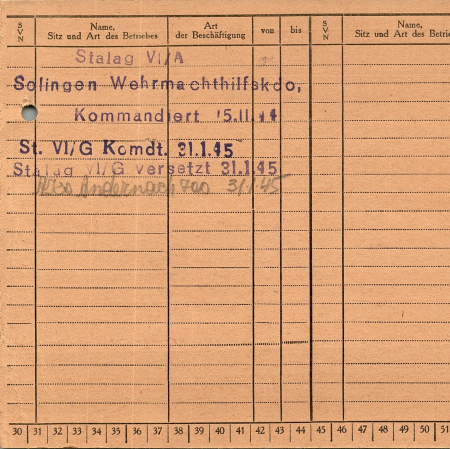 SVN Name, Sitz und Art des Betriebes Art der Beschäftigung von bis SVN Name, Sitz und Art des Betrie
Stalag VI/A
Solingen Wehrmachthilfskdo,
Kommandiert 15.11.44
St. VI/G Komdt. 31.1.45
Stalag VI/G versetzt 31.1.45
Andernach 700 31.1.45
30 31 32 33 34 35 36 37 38 39 40 41 42 43 44 45 46 47 48 49 50 51